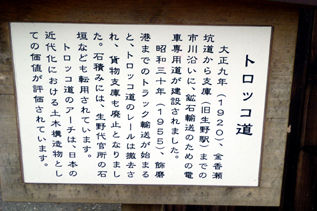 トロッコ道
大正九年(1920)、金香瀬
坑道から支庫(旧生野駅)までの
市川沿いに、鉱石輸送のための電
車専用道が建設されました。
昭和三十年(1955)、飾磨
港までのトラック輸送が始まる
と、トロッコ道のレールは撤去さ
れ、貨物支庫も廃止となりまし
た。石積みには、生野代官所の石
垣なども転用されています。
トロッコ道のアーチは、日本の
近代化における土木構造物とし
ての価値が評価されています。